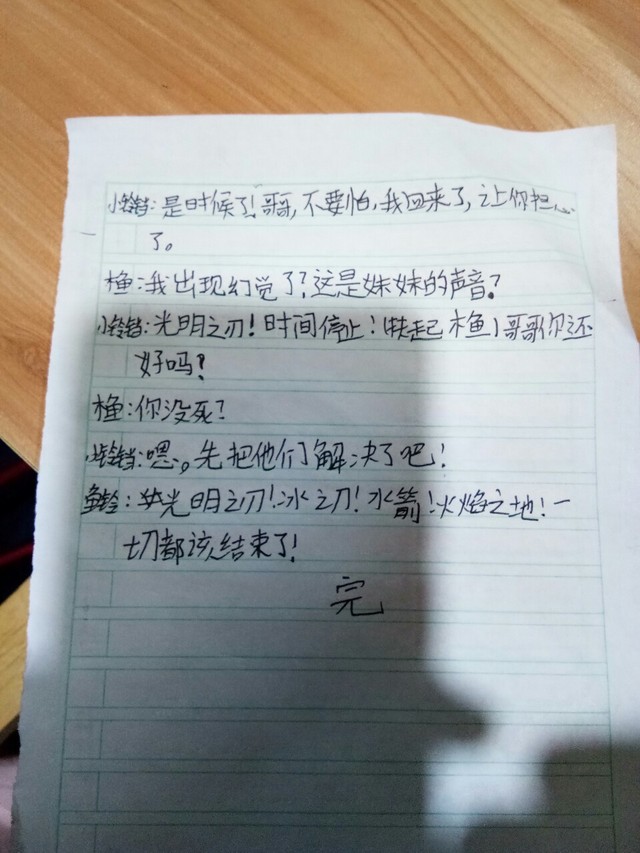 小铃铛:是时候了!哥哥,不要怕,我回来了,让你担心
了。
木鱼:我出现幻觉了?这是妹妹的声音?
小铃铛:光明之刃!时间停止!(扶起木鱼)哥哥你还
好吗?
木鱼:你没死?
小铃铛:嗯。先把他们解决了吧!
鱼铃:光明之刃!冰之刃!水箭!火焰之地!一
切都该结束了!
完